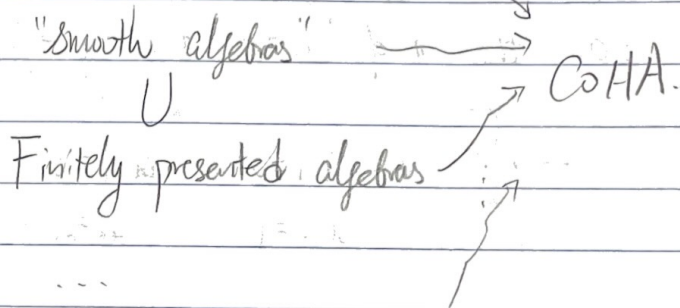 "smooth algebras"
CoHA.
∪
Finitely presented algebras
...